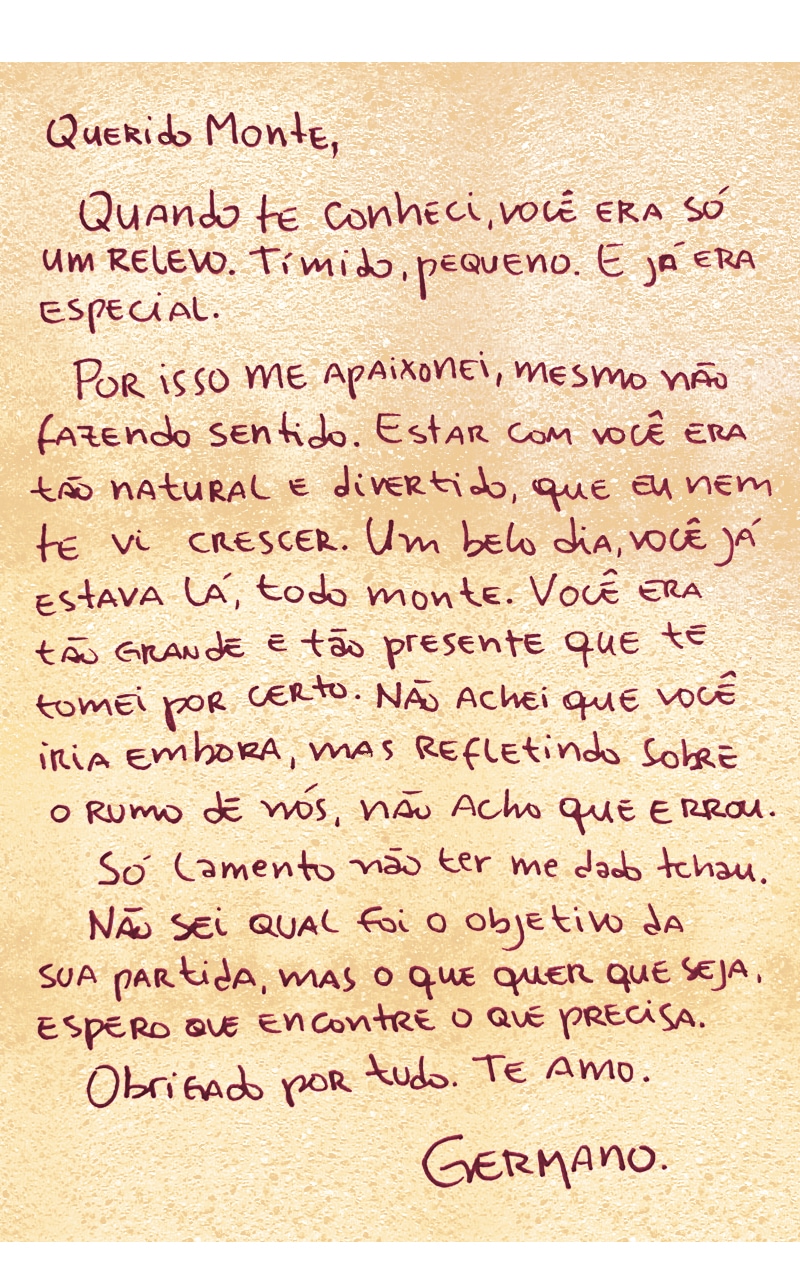 Querido Monte,
Quando te conheci, você era só
um relevo. Tímido, pequeno. E já era
especial.
Por isso me apaixonei, mesmo não
fazendo sentido. Estar com você era
tão natural e divertido, que eu nem
te vi crescer. Um belo dia, você já
estava lá, todo monte. Você era
tão grande e tão presente que te
tomei por certo. Não achei que você
iria embora, mas refletindo sobre
o rumo de nós, não acho que errou.
Só lamento não ter me dado tchau.
Não sei qual foi o objetivo da
sua partida, mas o que quer que seja,
espero que encontre o que precisa.
Obrigado por tudo. Te amo.
Germano.